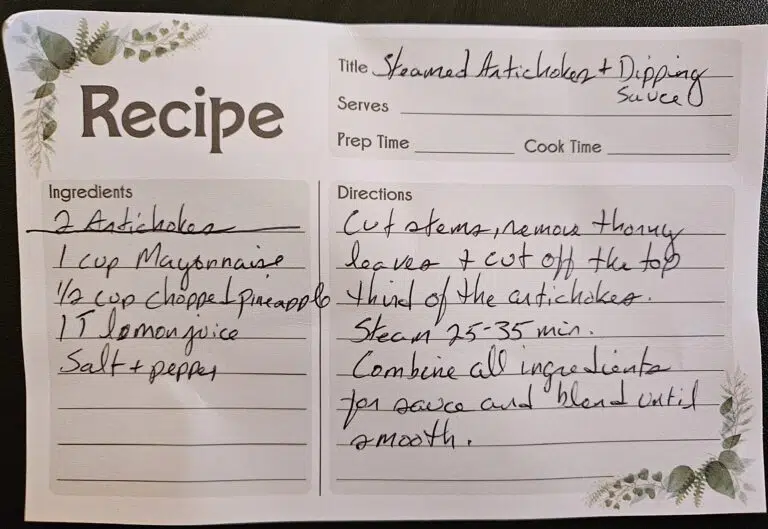 Recipe
Title Steamed Artichokes + Dipping
Sauce
Serves
Prep Time Cook Time
Ingredients
2 Artichokes
1 cup Mayonnaise
1/2 cup chopped pineapple
1 T lemon juice
Salt + pepper
Directions
Cut stems, remove thorny
leaves + cut off the top
third of the artichokes.
Steam 25-35 min.
Combine all ingredients
for sauce and blend until
smooth.